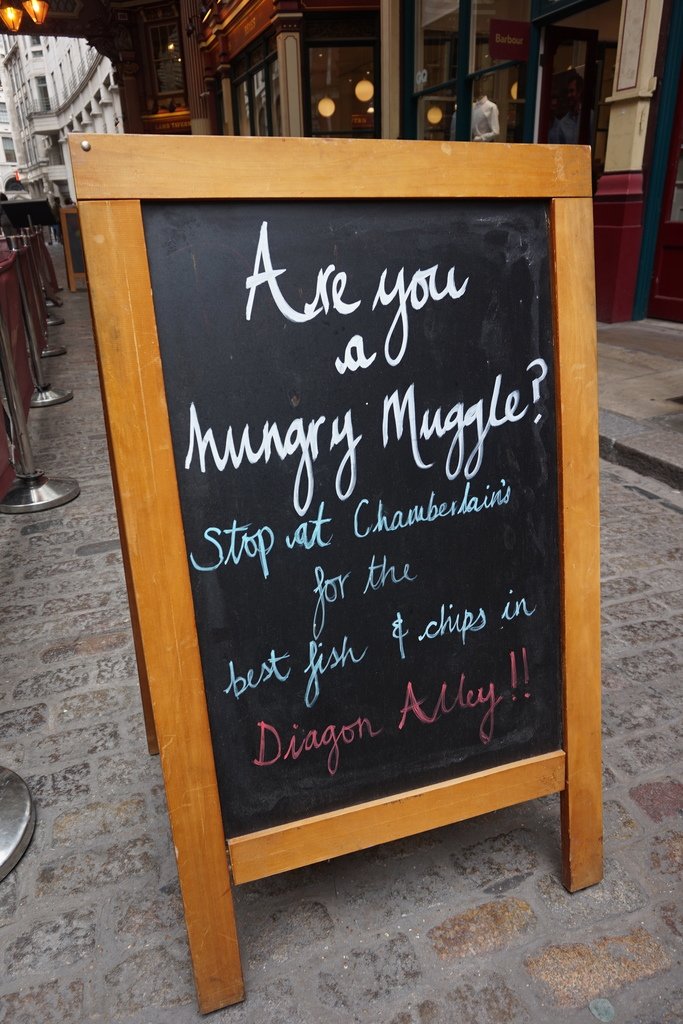 Barbour
Are you
a
hungry Muggle?
Stop at Chamberlain's
for the
best fish & chips in
Diagon Alley!!